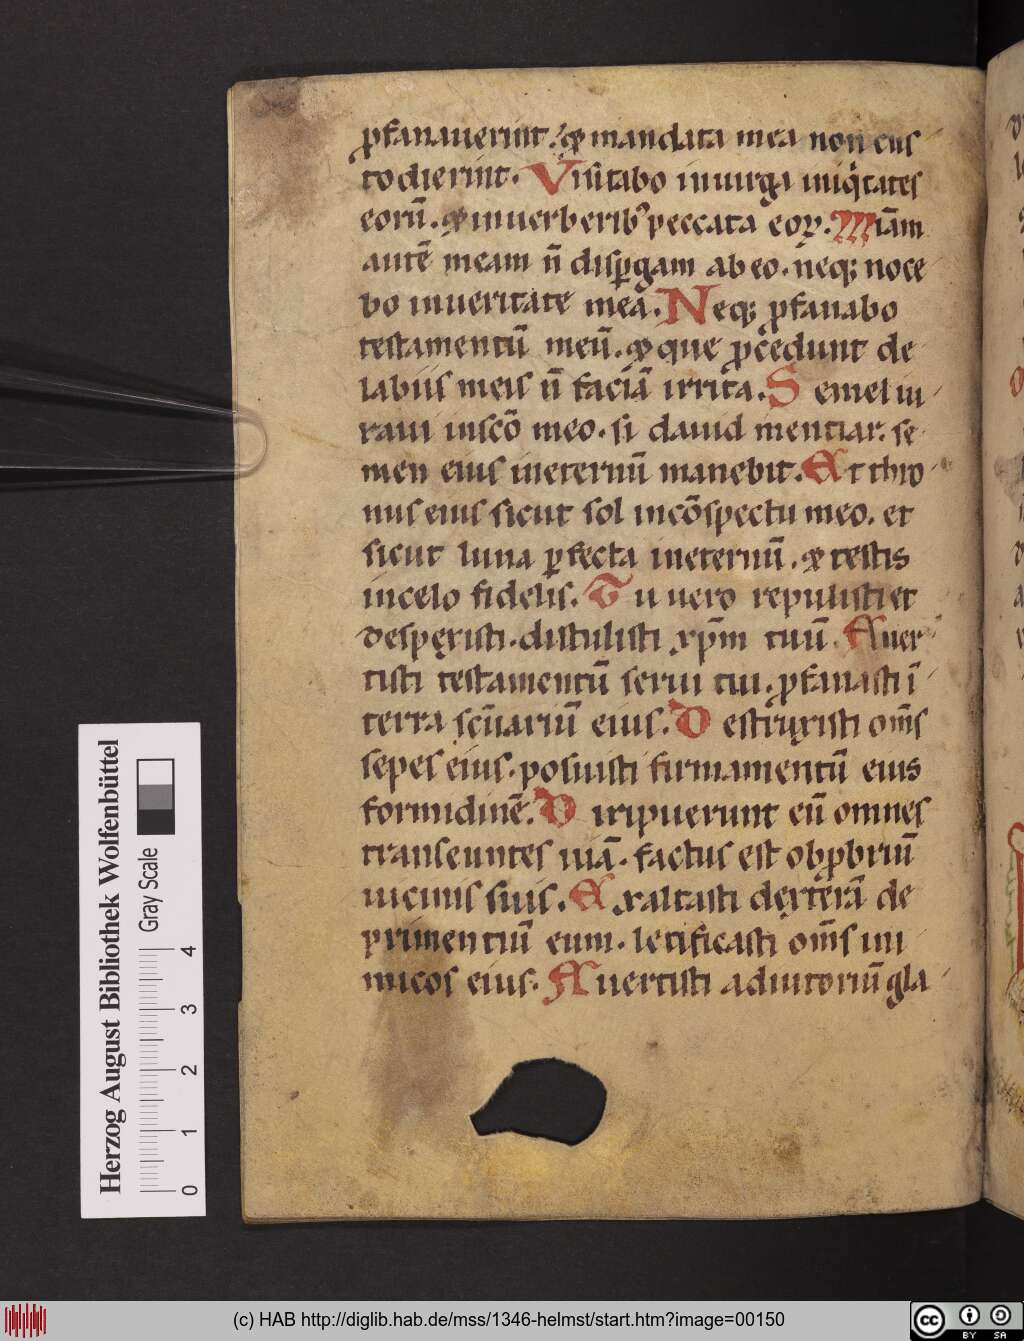 ꝓfanauerint. ⁊ mandata mea non cus
todierint. Visitabo inuirga iniq̇tates
eorū. ⁊ inuerberibꝰ peccata eoꝝ. Miām
autē meam ñ disꝑgam ab eo. neqꝫ noce
bo inueritate mea. Neqꝫ ꝓfanabo
testamentū meū. ⁊ que ꝓcedunt de
labiis meis ñ faciā irrita. Semel iu
raui inscō meo. si dauid mentiar. se
men eius ineternū manebit. Et thro
nus eius sicut sol incōspectu meo. et
sicut luna ꝑfecta ineternū. ⁊ testis
incelo fidelis. Tu uero repulisti et
despexisti. distulisti xp̄m tuū. Auer
tisti testamentū serui tui. ꝓfanasti ī
terra scūariū eius. Destruxisti om̄s
sepes eius. posuisti firmamentū eius
formidinē. Diripuerunt eū omnes
transeuntes uiā. factus est obꝓbriū
uicinis suis. Exaltasti dexterā de
primentiū eum. letificasti om̄s ini
micos eius. Auertisti adiutoriū gla
Herzog August Bibliothek Wolfenbüttel
Gray Scale
0 1 2 3 4
(c) HAB http://diglib.hab.de/mss/1346-helmst/start.htm?image=00150
cc BY SA